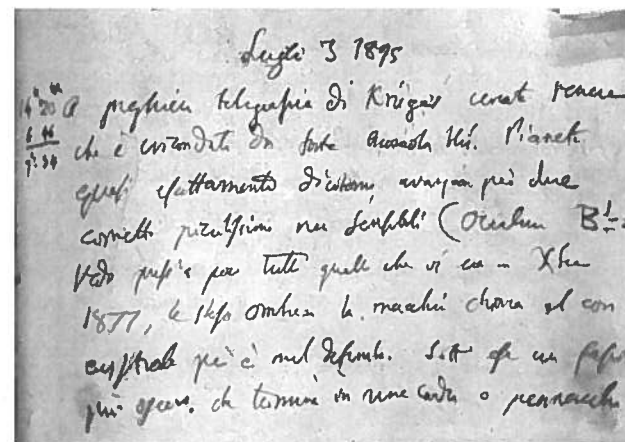 Luglio 3 1895
14 20 A preghiera telegrafica di Krüger cercato Venere
6 46 che è circondata da forte aureola blù. Pianeta
7 34 quasi esattamente dicotomo
cornetti piccolissimi ma sensibili (Oculare B
Vedo press'a poco tutto quello che vi era in Xbre
1877, le stesse ombre la macchia chiara al corno
australe più è mal definito. Sott'essa un
più oscuro, che termina in una coda o pennacchio